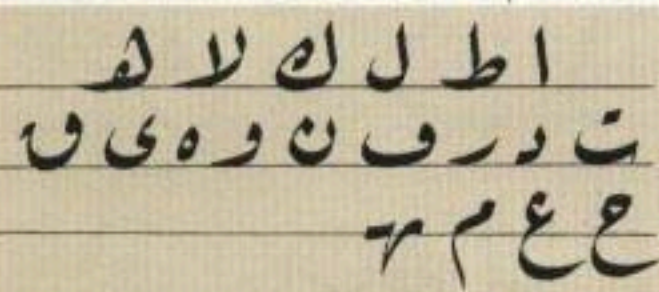 ا ط ل ك لا ھ
ت د ر ف ن و ه ى ق
ح ع م ﮩ